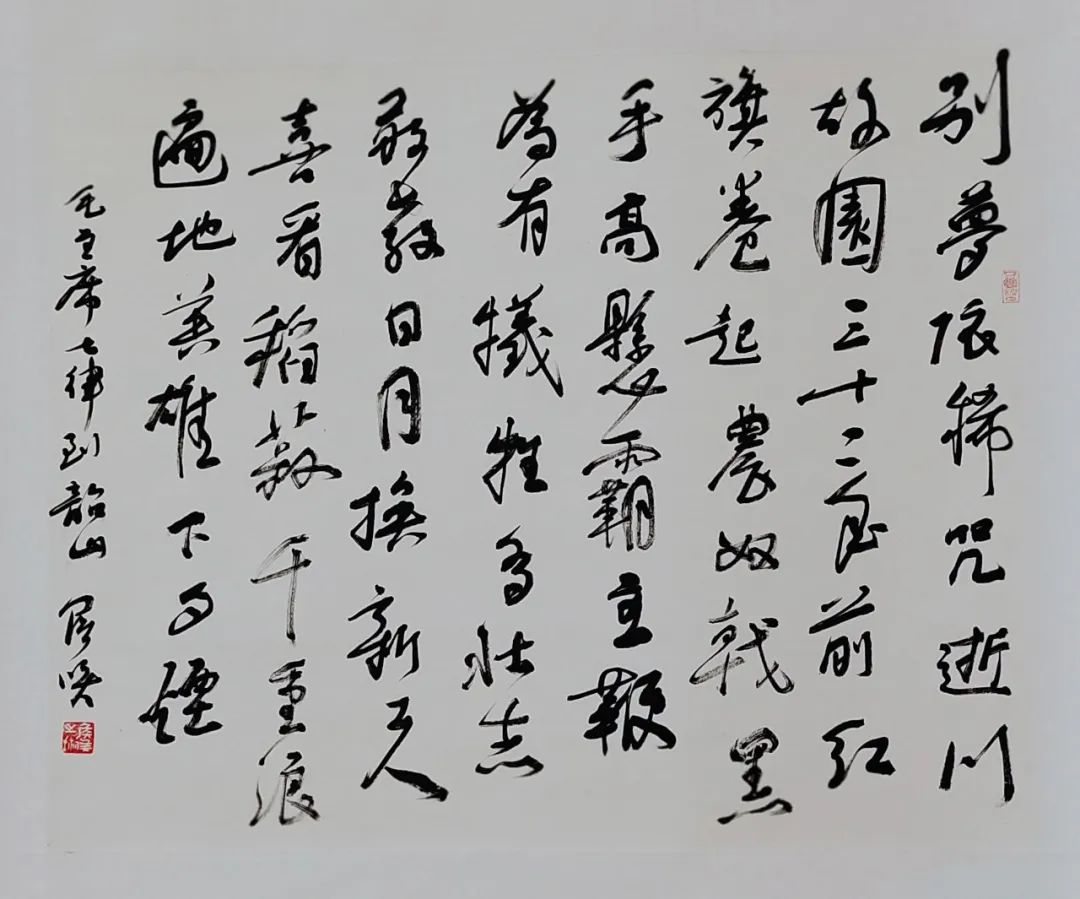 别夢依稀咒逝川
故園三十二年前红
旗卷起農奴戟黑
手高懸霸主鞭
為有犧牲多壮志
敢教日月换新天
喜看稻菽千重浪
遍地英雄下夕煙
毛主席七律到韶山